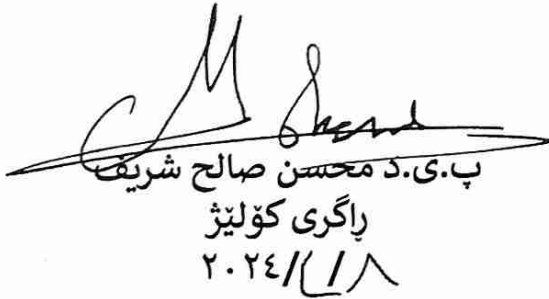 پ.ی.د محسن صالح شریف
ڕاگری کۆلێژ
٢٠٢٤/ / ٨